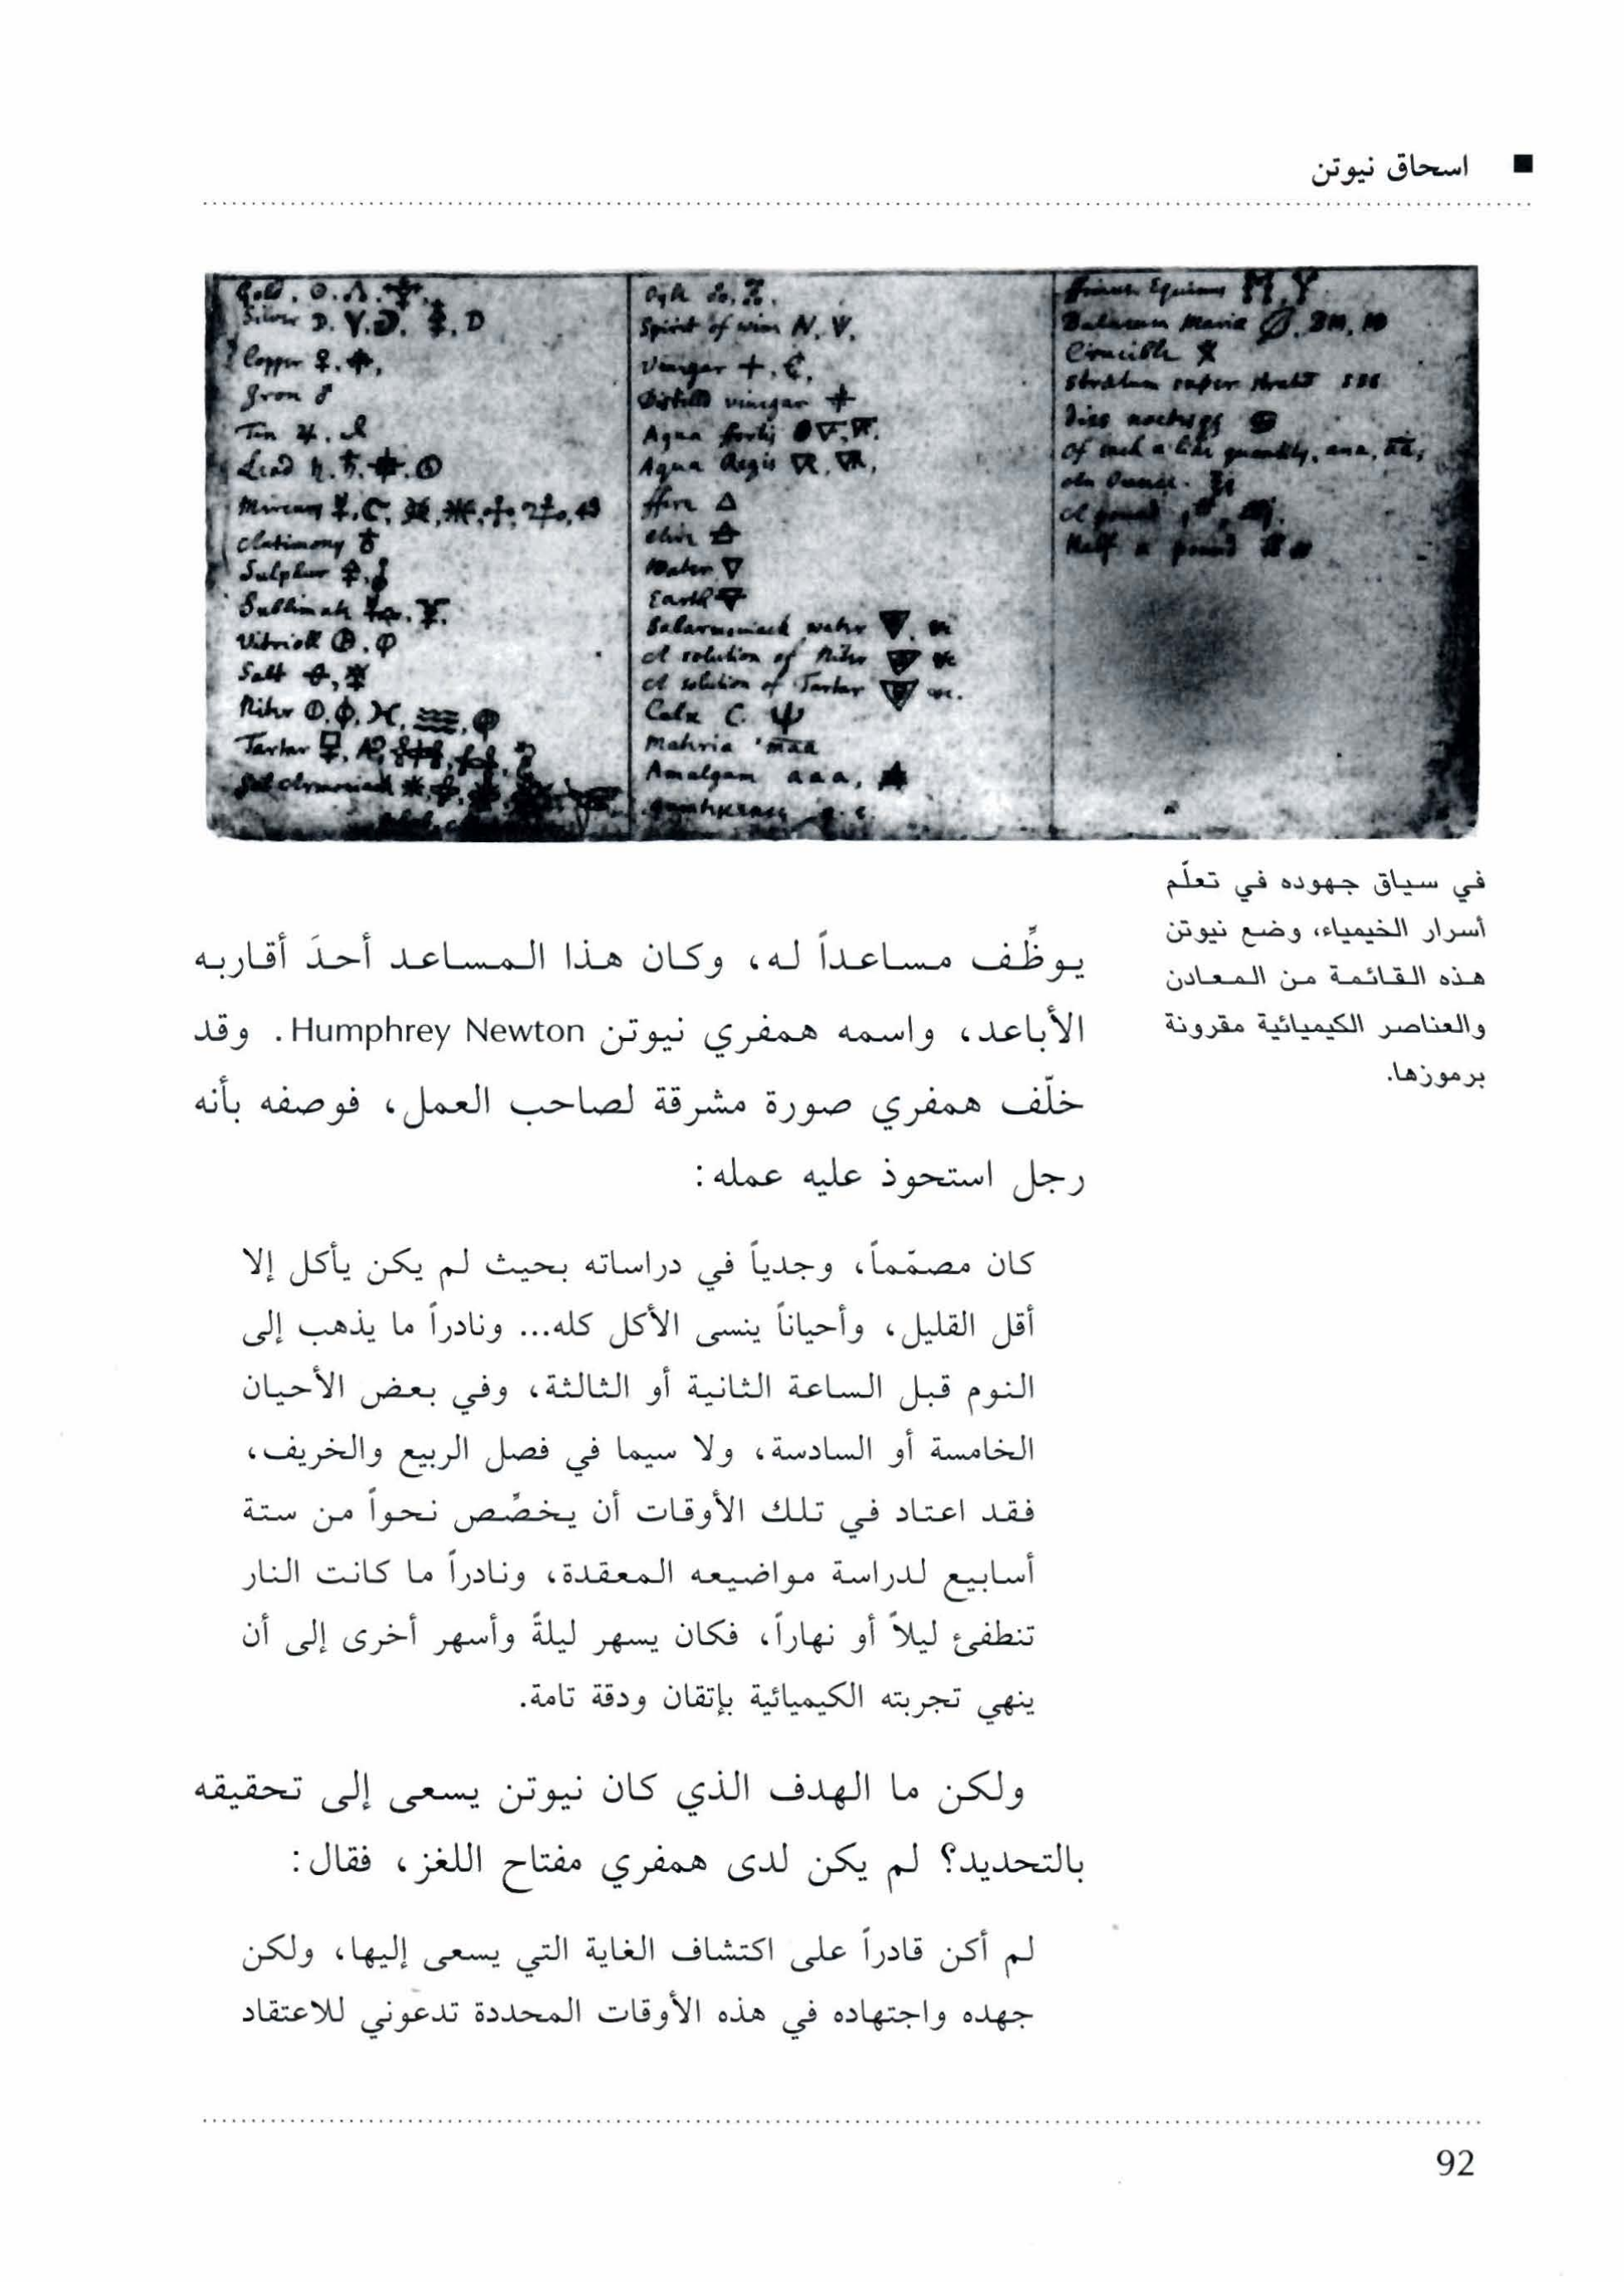 اسحاق نيوتن
Gold
Silver
Copper
Iron
Tin
Lead
Mercury
Antimony
Sulphur
Sublimate
Vitrioll
Salt
Niter
Tartar
Sal Armoniack
Oyle
Spirit of wine
Vinegar
Distilld vinegar
Aqua fortis
Aqua Regis
ffire
Water
Earth
Salarmoniack water
A solution of Niter
A solution of Tartar
Calx C.
Materia maa
Amalgam a a a,
Balneum Mariæ
Crucible
Stratum super stratū SSS
of each a like quantity, ana,
A pound
Half a pound
في سياق جهوده في تعلّم
أسرار الخيمياء، وضع نيوتن
هذه القائمة من المعادن
والعناصر الكيميائية مقرونة
برموزها.
يوظِّف مساعداً له، وكان هذا المساعد أحدَ أقاربه
الأباعد، واسمه همفري نيوتن Humphrey Newton. وقد
خلّف همفري صورة مشرقة لصاحب العمل، فوصفه بأنه
رجل استحوذ عليه عمله:
كان مصمّماً، وجدياً في دراساته بحيث لم يكن يأكل إلا
أقل القليل، وأحياناً ينسى الأكل كله... ونادراً ما يذهب إلى
النوم قبل الساعة الثانية أو الثالثة، وفي بعض الأحيان
الخامسة أو السادسة، ولا سيما في فصل الربيع والخريف،
فقد اعتاد في تلك الأوقات أن يخصِّص نحواً من ستة
أسابيع لدراسة مواضيعه المعقدة، ونادراً ما كانت النار
تنطفئ ليلاً أو نهاراً، فكان يسهر ليلةً وأسهر أخرى إلى أن
ينهي تجربته الكيميائية بإتقان ودقة تامة.
ولكن ما الهدف الذي كان نيوتن يسعى إلى تحقيقه
بالتحديد؟ لم يكن لدى همفري مفتاح اللغز، فقال:
لم أكن قادراً على اكتشاف الغاية التي يسعى إليها، ولكن
جهده واجتهاده في هذه الأوقات المحددة تدعوني للاعتقاد
92